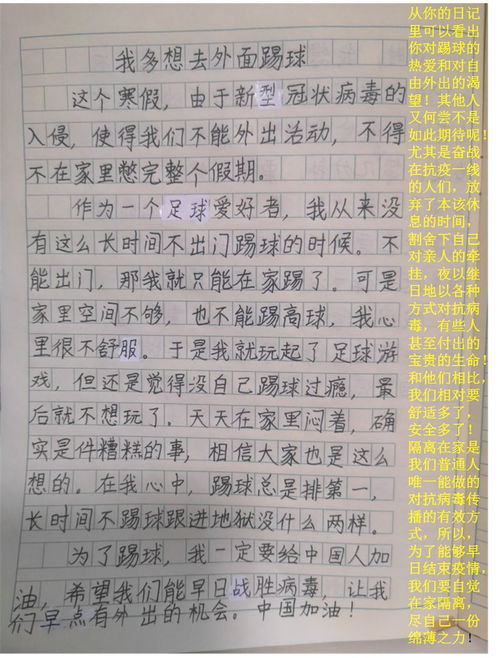 我多想去外面踢球
这个寒假，由于新型冠状病毒的
入侵，使得我们不能外出活动，不得
不在家里憋完整个假期。
作为一个足球爱好者，我从来没
有这么长时间不出门踢球的时候。不
能出门，那我就只能在家踢了。可是
家里空间不够，也不能踢高球，我心
里很不舒服。于是我就玩起了足球游
戏，但还是觉得没自己踢球过瘾，最
后就不想玩了。天天在家里闷着，确
实是件糟糕的事，相信大家也是这么
想的。在我心中，踢球总是排第一，
长时间不踢球跟进地狱没什么两样。
为了踢球，我一定要给中国人加
油，希望我们能早日战胜病毒，让我
们早点有外出的机会。中国加油！
从你的日记
里可以看出
你对踢球的
热爱和对自
由外出的渴
望！其他人
又何尝不是
如此期待呢！
尤其是奋战
在抗疫一线
的人们，放
弃了本该休
息的时间，
割舍下自己
对亲人的牵
挂，夜以继
日地以各种
方式对抗病
毒，有些人
甚至付出的
宝贵的生命！
和他们相比，
我们相对要
舒适多了，
安全多了！
隔离在家是
我们普通人
唯一能做的
对抗病毒传
播的有效方
式，所以，
为了能够早
日结束疫情，
我们要自觉
在家隔离，
尽自己一份
绵薄之力！